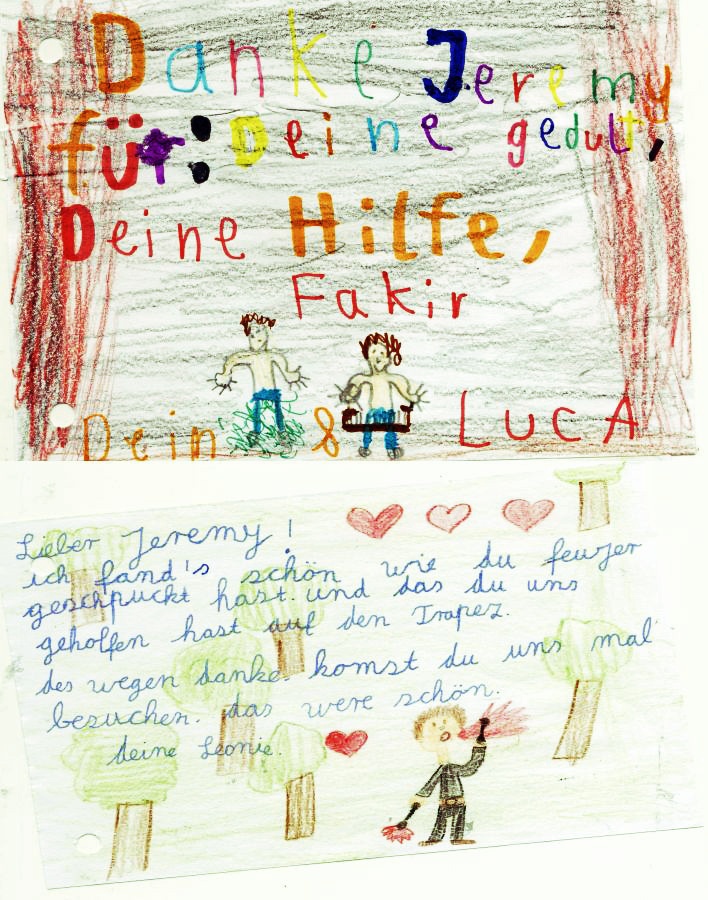 Danke Jeremy
für: Deine gedult,
Deine Hilfe,
Fakir
Dein & LUCA
Lieber Jeremy!
ich fand's schön wie du feujer
geschpuckt hast. und das du uns
geholfen hast auf den Trapez.
des wegen danke. komst du uns mal
besuchen. das were schön.
deine Leonie.